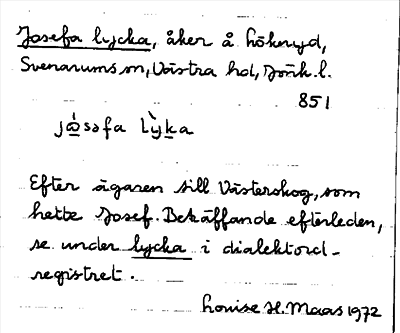 Josefa lycka, åker å Höknyd,
Svenarums sn, Västra hd, Jönk. l.
851
jósəfa lỳka
Efter ägaren till Västerskog, som
hette Josef. Beträffande efterleden,
se under lycka i dialektord-
registret.
Louise H. Maas 1972